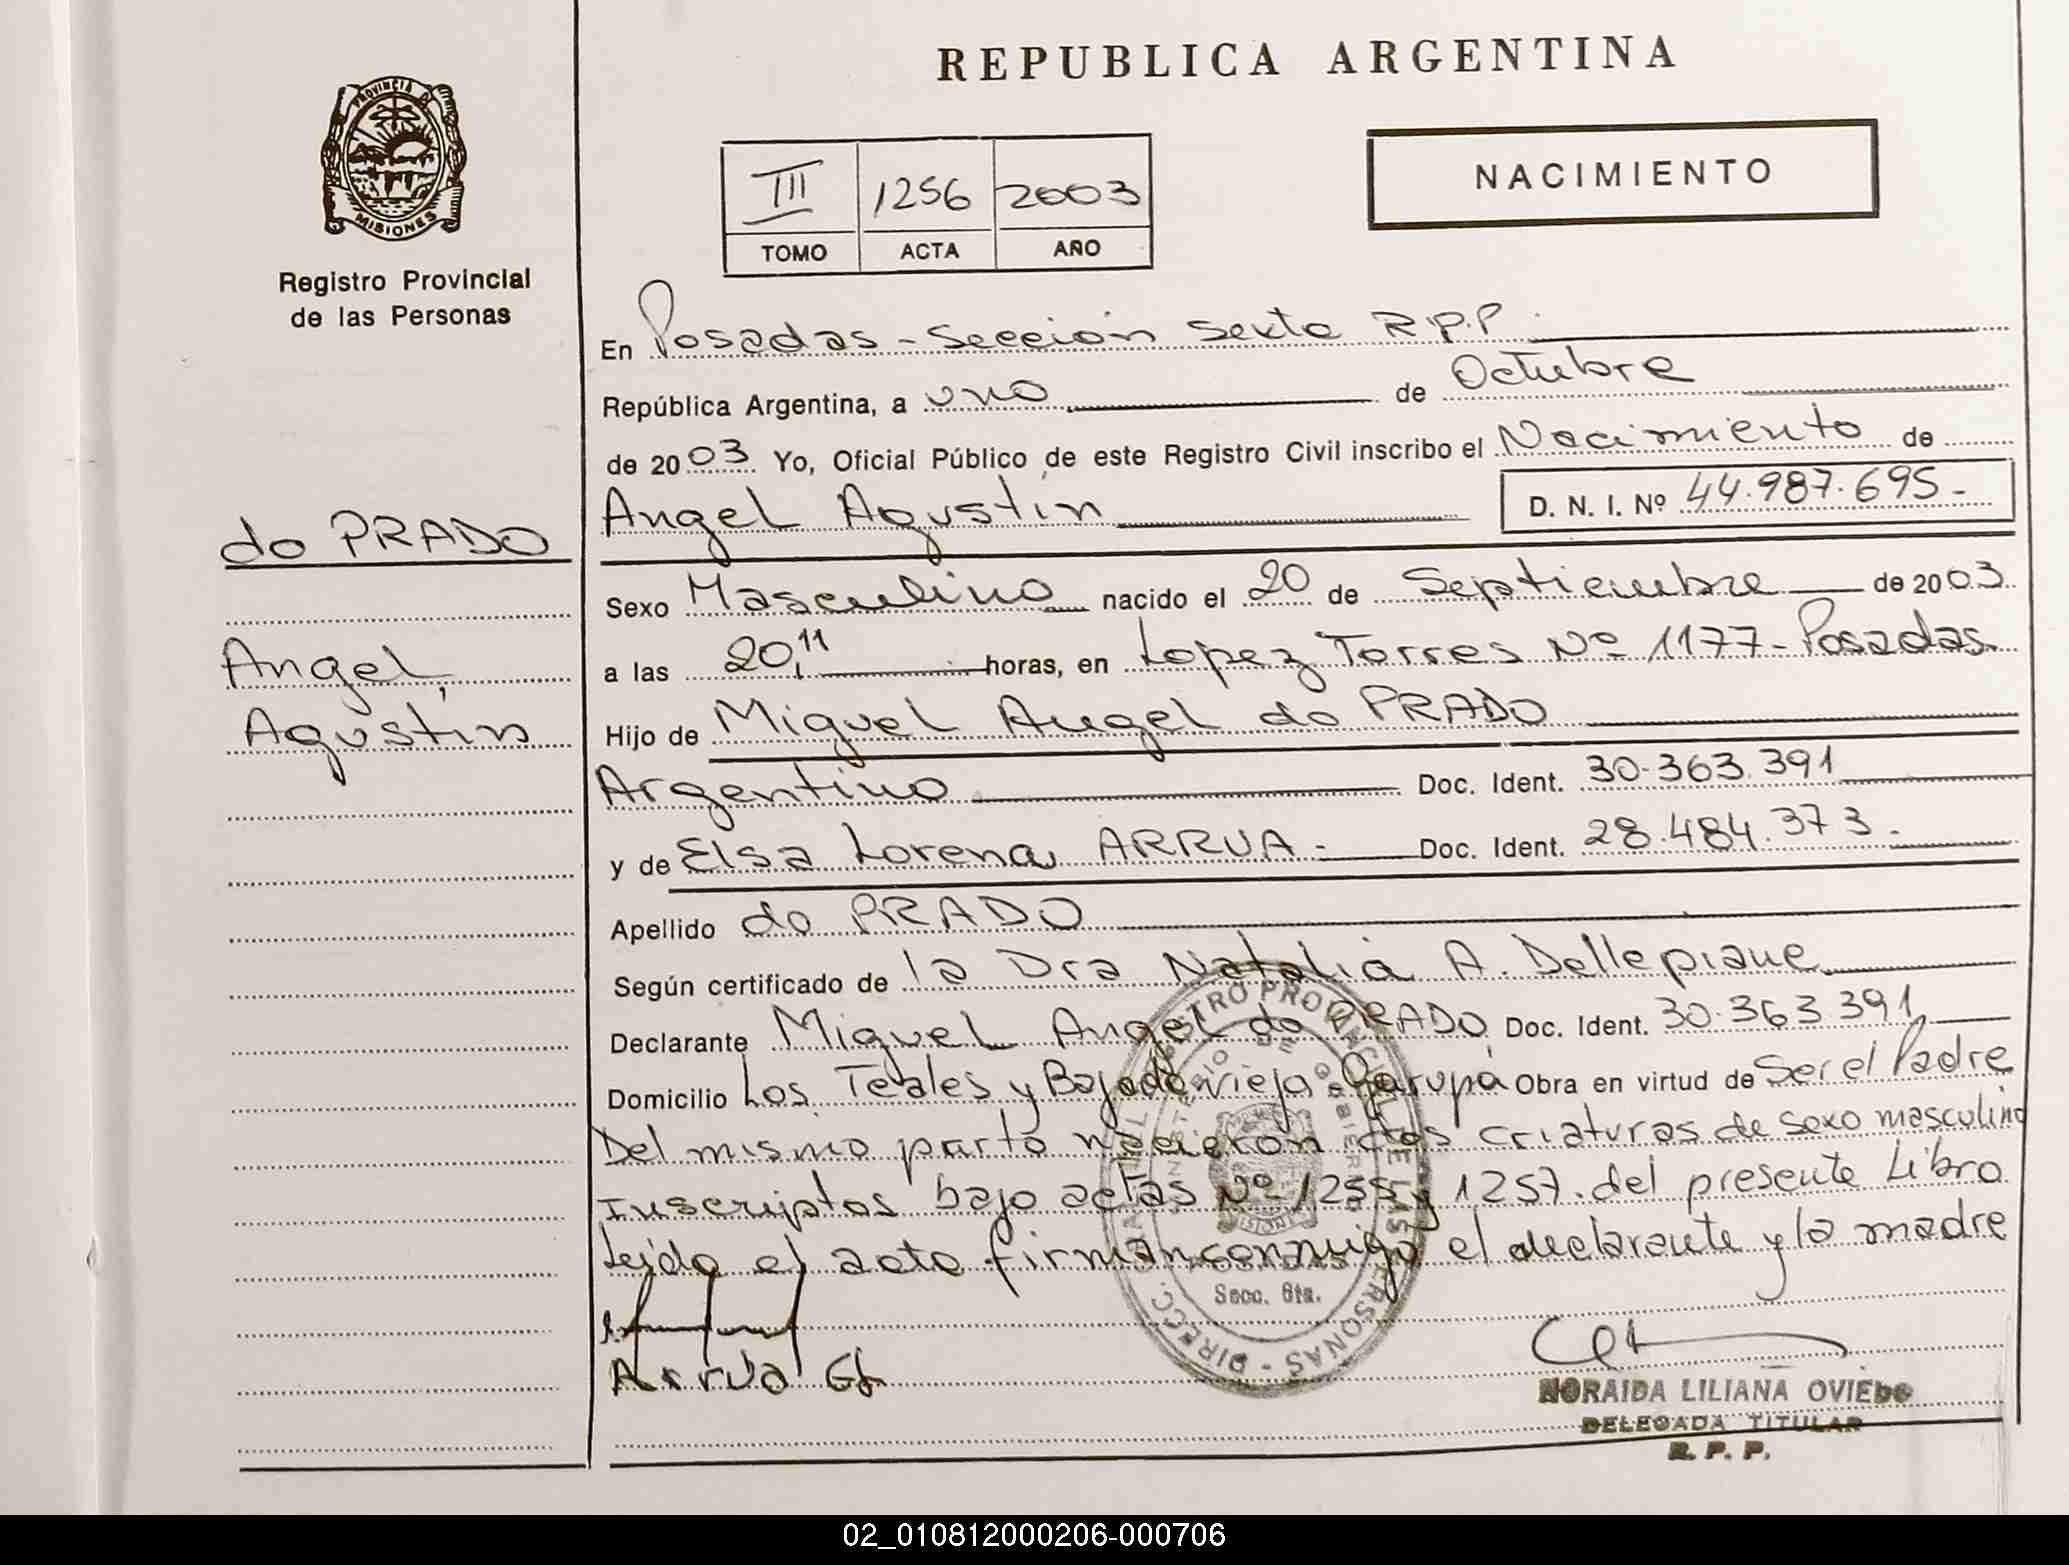 REPUBLICA ARGENTINA
PROVINCIA DE
MISIONES
Registro Provincial
de las Personas
III 1256 2003
TOMO ACTA AÑO
NACIMIENTO
En Posadas - Sección Sexta R.P.P.
República Argentina, a uno de Octubre
de 2003 Yo, Oficial Público de este Registro Civil inscribo el Nacimiento de
Angel Agustín D. N. I. Nº 44.987.695-
do PRADO
Angel,
Agustín
Sexo Masculino nacido el 20 de Septiembre de 2003.
a las 20,11 horas, en Lopez Torres Nº 1177 - Posadas.
Hijo de Miguel Angel do PRADO
Argentino Doc. Ident. 30.363.391
y de Elsa Lorena ARRUA.- Doc. Ident. 28.484.373.-
Apellido do PRADO
Según certificado de la Dra Natalia A. Dellepiane
Declarante Miguel Angel do PRADO Doc. Ident. 30.363.391
Domicilio Los Teales y Bajada vieja - Garupá Obra en virtud de Ser el Padre
Del mismo parto nacieron dos criaturas de sexo masculino
Inscriptos bajo actas Nº 1255 y 1257 del presente Libro
Leída el acta firman conmigo el declarante y la madre
Secc. 6ta.
Arrua
NORAIDA LILIANA OVIEDO
DELEGADA TITULAR
R. P. P.
02_010812000206-000706